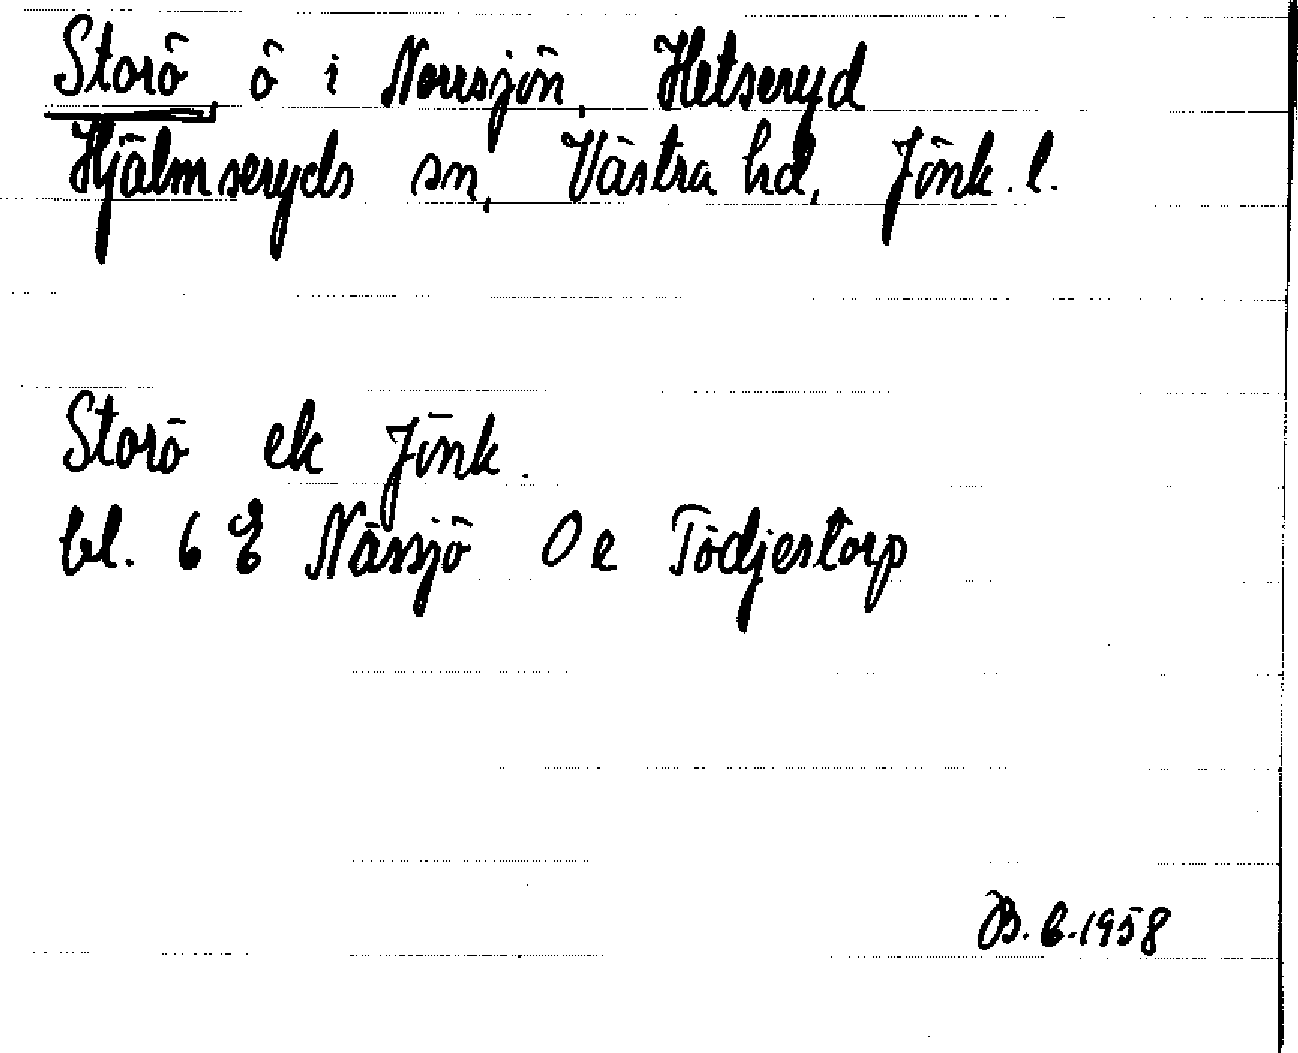 Storö, ö i Norrsjön, Hetseryd
Hjälmseryds sn, Västra hd, Jönk. l.
Storö ek Jönk.
bl. 6 E Nässjö 0 e Tödjestorp
B. b. 1958